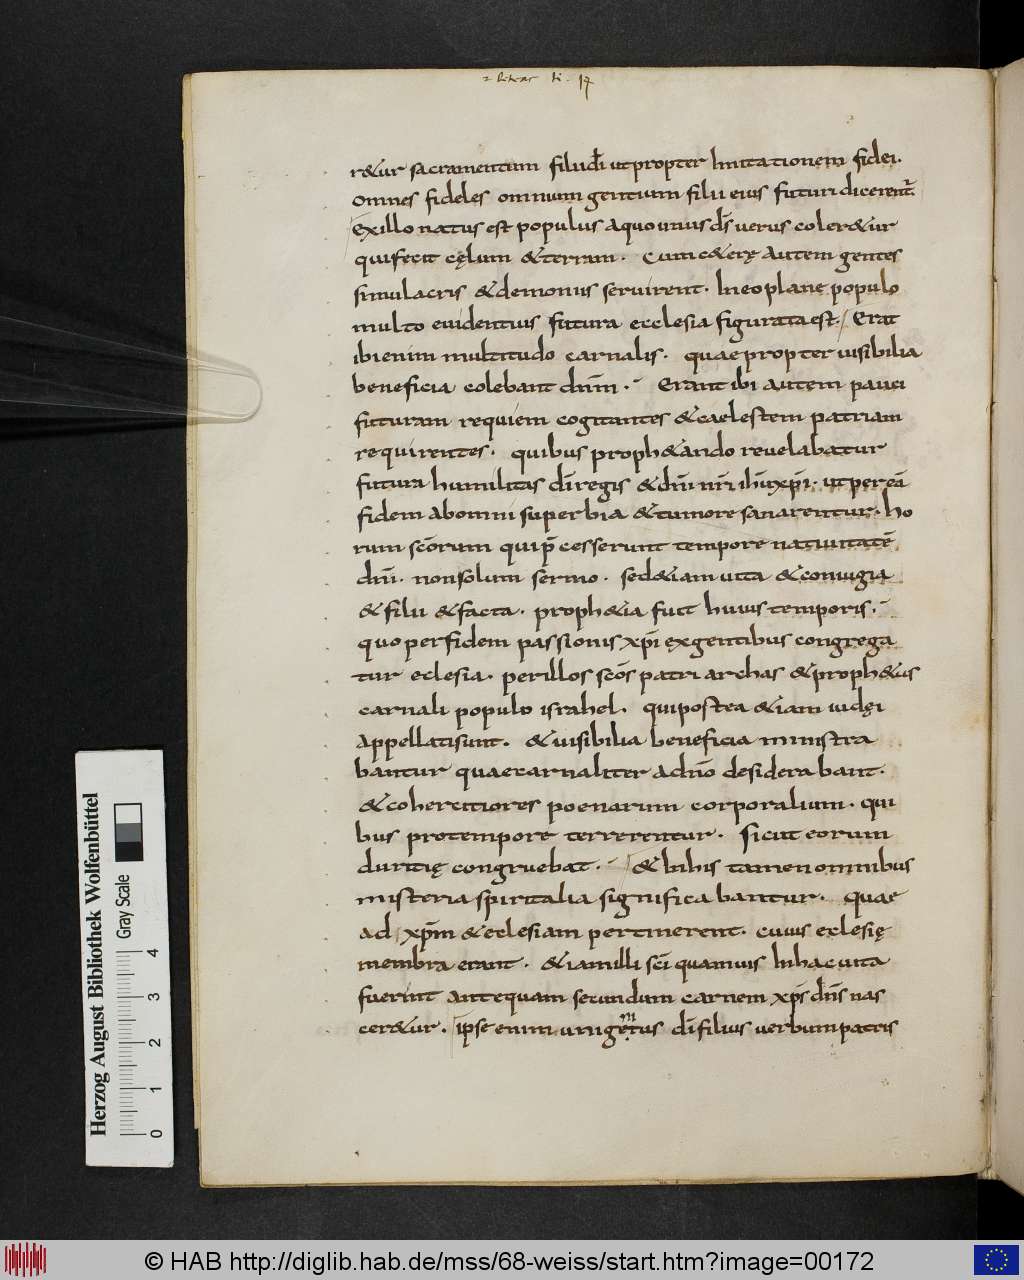 r&ur sacramentum filiidī utpropter Imitationem fidei.
omnes fideles omnium gentium filii eius futuri dicerent̄.
Exillo natus est populus aquounus ds̄ verus coler&ur
quifecit cęlum &terram. Cum c&erę autem gentes
simulacris &demoniis servirent. Ineoplane populo
multo euidentius futura ecclesia figurata est. Erat
ibienim multitudo carnalis. quae propter uisibilia
beneficia colebant dnm̄. Erant ibi autem pauci
futuram requiem cogitantes &caelestem patriam
requirentes. quibus proph&ando reuelabatur
futura humilitas dīregis &dnī nrī ihūxpī. utpereā
fidem abomni superbia &tumore sanarentur. ho
rum scōrum quip̄cesserunt tempore natiuitatē
dnī. nonsolum sermo. sed&iam uita &coniugia
&filii &facta. proph&ia fuit huius temporis.
quo perfidem passionis xpī exgentibus congrega
tur eclesia. perillos scōs patriarchas &proph&as
carnali populo israhel. quipostea &iam iudęi
appellatisunt. &uisibilia beneficia ministra
bantur quaecarnaliter adnō desiderabant.
&cohercitiores poenarum corporalium. qui
bus protempore terrerentur. sicut eorum
duritię congruebat. &inhis tamen omnibus
misteria spiritalia significabantur. quae
ad xpm̄ &eclesiam pertinerent. cuius eclesię
membra erant. &iamilli scī quamuis Inhacuita
fuerint antequam secundum carnem xps̄ dns̄ nas
cer&ur. ipse enim unigetus dīfilius uerbumpatris
Herzog August Bibliothek Wolfenbüttel
Gray Scale
0 1 2 3 4
© HAB http://diglib.hab.de/mss/68-weiss/start.htm?image=00172